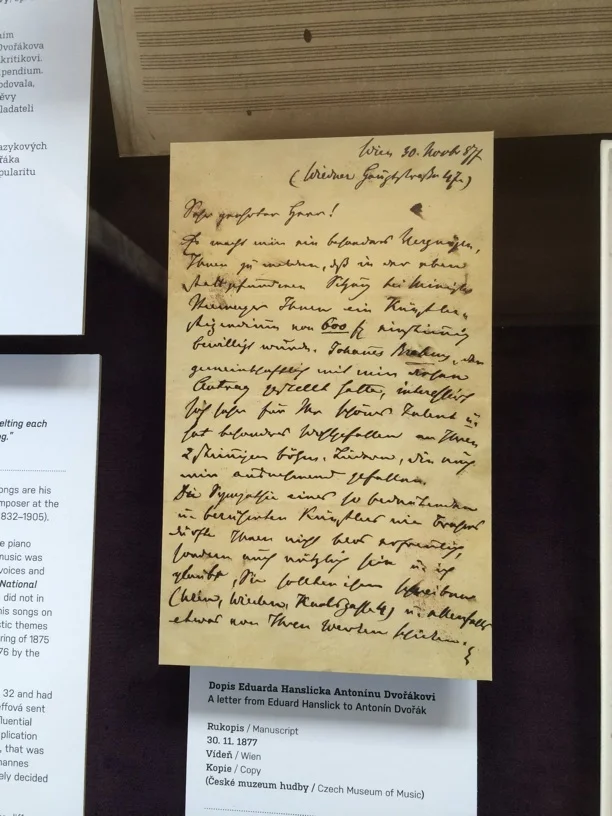 ním
Dvořákova
kritikovi.
ipendium.
odovala,
ěvy
ladateli
azykových
řáka
pularitu
Wien 30. Novb 877
(Wiedner Hauptstraße 47.)
Sehr geehrter Herr!
Es macht mir ein besonderes Vergnügen,
Ihnen zu melden, daß in der eben
stattgefundenen Sitzung bei Minister
Stremayer Ihnen ein Künstler-
stipendium von 600 fl einstimmig
bewilligt wurde. Johannes Brahms, der
gemeinschaftlich mit mir diesen
Antrag gestellt hatte, interessirt
sich sehr für Ihr schönes Talent u.
hat besonders Wohlgefallen an Ihren
2stimmigen böhm. Liedern, die auch
mir ausnehmend gefallen.
Die Sympathie eines so bedeutenden
u. berühmten Künstlers wie Brahms
dürfte Ihnen nicht blos erfreulich,
sondern auch nützlich sein u. ich
glaube, Sie sollten ihm schreiben
(Wien, Wieden, Karlsgasse 4) u. allenfalls
etwas von Ihren Werken schicken.
elting each
g."
ongs are his
mposer at the
832–1905).
e piano
music was
voices and
National
did not in
his songs on
stic themes
ring of 1875
76 by the
32 and had
effová sent
fluential
plication
, that was
hannes
ely decided
Dopis Eduarda Hanslicka Antonínu Dvořákovi
A letter from Eduard Hanslick to Antonín Dvořák
Rukopis / Manuscript
30. 11. 1877
Vídeň / Wien
Kopie / Copy
(České muzeum hudby / Czech Museum of Music)